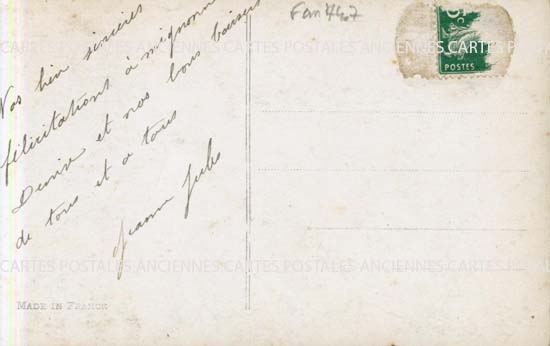 Nos bien sincères
félicitations à mignonne
Denise et nos bons baisers
de tous et a tous
Jeanne Jules
MADE IN FRANCE
Fan 4407
5
POSTES
ANCIENNES CARTES POSTALES ANCIENNES CARTES POSTALES
CARTES POSTALES ANCIENNES CARTES POSTALES ANCIENNES